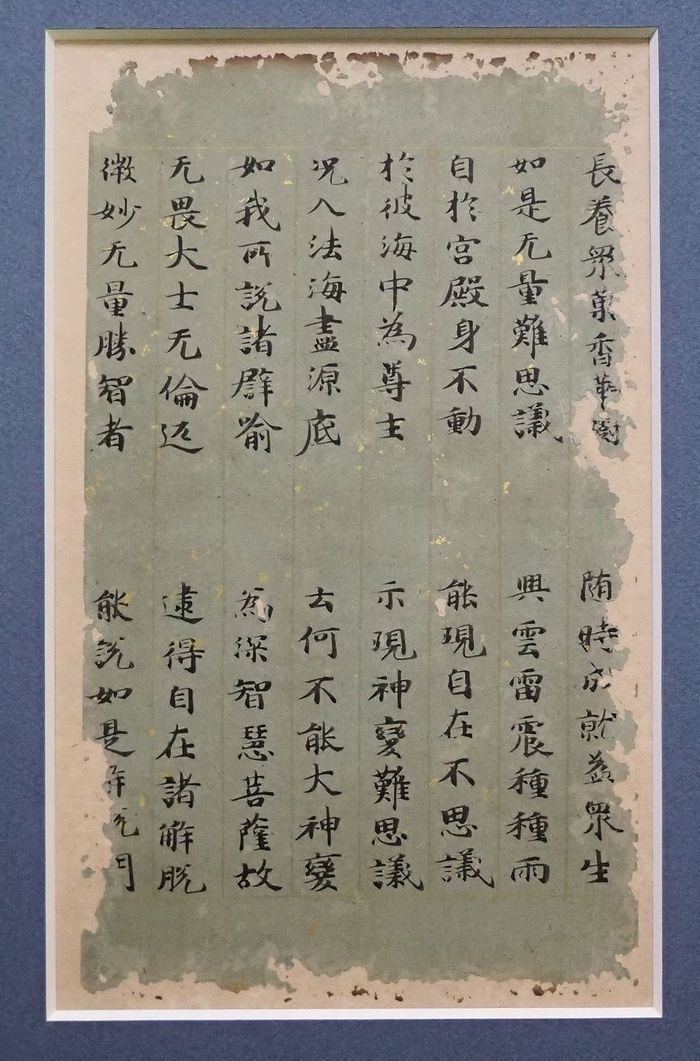 長養衆藥香華樹　随時成就益衆生
如是无量難思議　興雲雷震種種雨
自於宮殿身不動　能現自在不思議
於彼海中為尊主　示現神變難思議
况入法海盡源底　云何不能大神變
如我所說諸譬喻　為深智慧菩薩故
无畏大士无倫匹　逮得自在諸解脫
微妙无量勝智者　能說如是解脫門